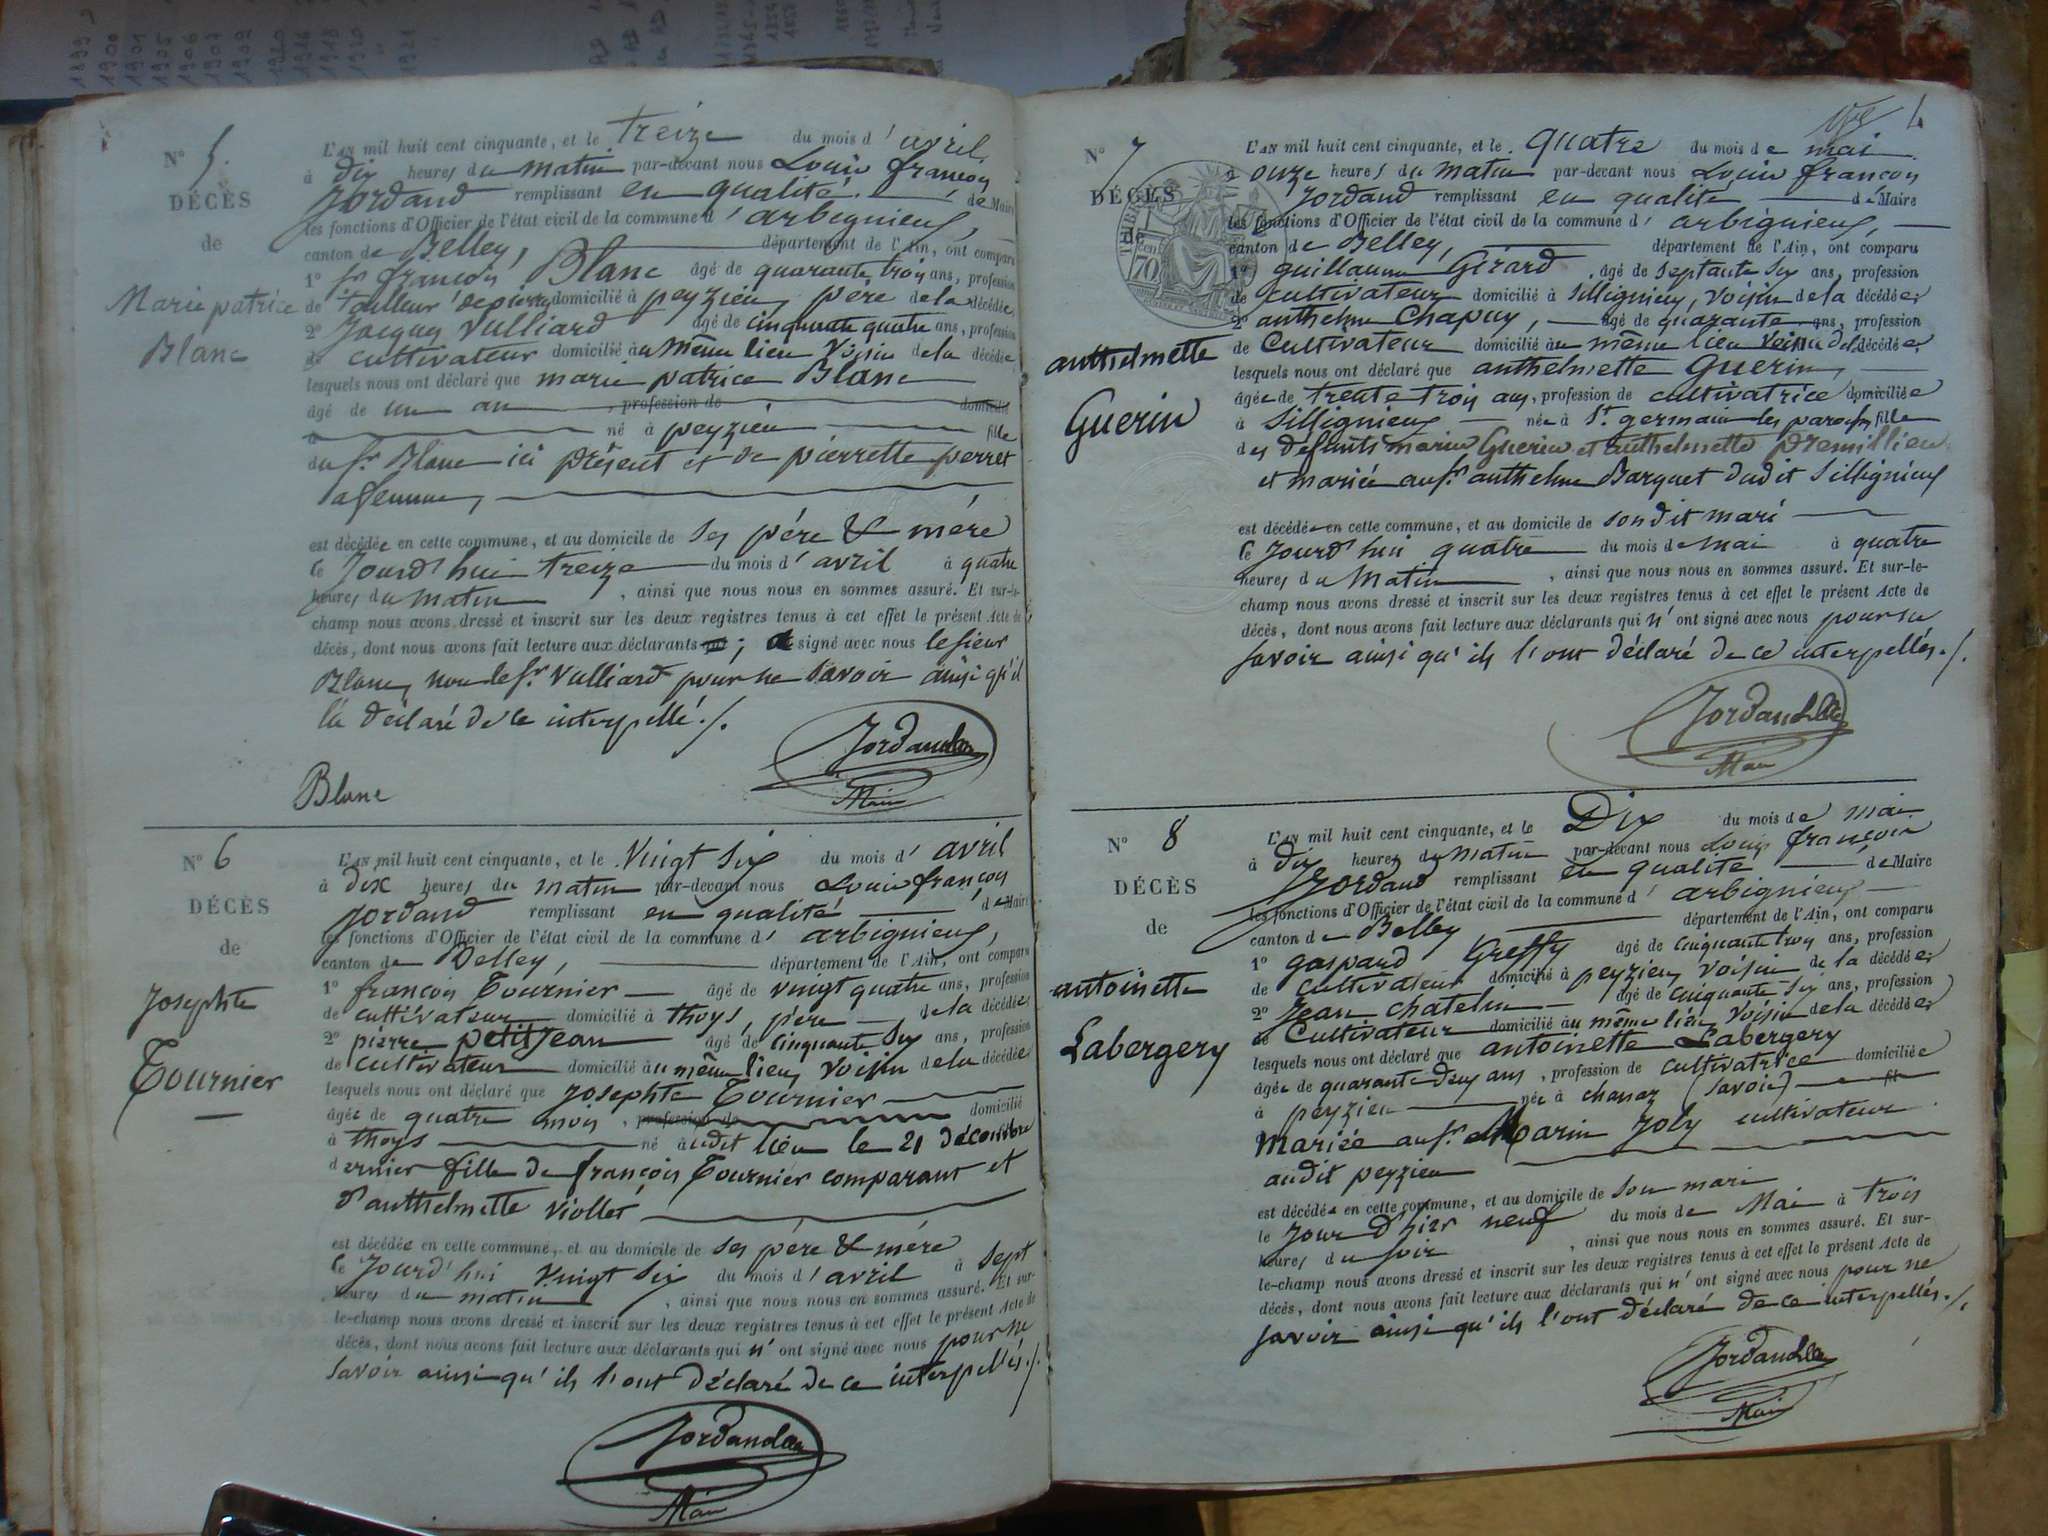 N° 5.
DÉCÈS
de
Marie patrice
Blanc
L'AN mil huit cent cinquante, et le treize du mois d'avril
à dix heures du matin par-devant nous Louis françois
Jordand remplissant en qualité de Maire
les fonctions d'Officier de l'état civil de la commune d'arbignieux,
canton de Belley, département de l'Ain, ont comparu
1° Sr françois Blanc âgé de quarante trois ans, profession
de tailleur de pierre domicilié à peyzieu, père de la décédée
2° Jacques Vulliard âgé de cinquante quatre ans, profession
de cultivateur domicilié au même lieu voisin de la décédée,
lesquels nous ont déclaré que marie patrice Blanc
âgé de un an, profession de domicilié
à né à peyzieu fille
du Sr Blanc ici présent et de pierrette perret
sa femme,
est décédée en cette commune, et au domicile de ses père & mère
le Jourd'hui treize du mois d'avril à quatre
heures du matin, ainsi que nous nous en sommes assuré. Et sur-le-
champ nous avons dressé et inscrit sur les deux registres tenus à cet effet le présent Acte de
décès, dont nous avons fait lecture aux déclarants qui; signé avec nous le sieur
Blanc, non le Sr Vulliard pour ne savoir ainsi qu'il
l'a déclaré de ce interpellé./.
Blanc
Jordand
Maire
N° 6
DÉCÈS
de
Josephte
Tournier
L'AN mil huit cent cinquante, et le Vingt six du mois d'avril
à dix heures du matin par-devant nous Louis françois
Jordand remplissant en qualité de Maire
les fonctions d'Officier de l'état civil de la commune d'arbignieux,
canton de Belley, département de l'Ain, ont comparu
1° françois Tournier âgé de vingt quatre ans, profession
de cultivateur domicilié à thoys, père de la décédée
2° pierre petitjean âgé de cinquante six ans, profession
de cultivateur domicilié au même lieu, voisin de la décédée
lesquels nous ont déclaré que Josephte Tournier
âgée de quatre mois, profession de domicilié
à thoys né audit lieu le 21 décembre
dernier fille de françois Tournier comparant et
d'anthelmette Viollet
est décédée en cette commune, et au domicile de ses père & mère
le Jourd'hui Vingt six du mois d'avril à sept
heures du matin, ainsi que nous nous en sommes assuré. Et sur-
le-champ nous avons dressé et inscrit sur les deux registres tenus à cet effet le présent Acte de
décès, dont nous avons fait lecture aux déclarants qui n'ont signé avec nous pour ne
savoir ainsi qu'ils l'ont déclaré de ce interpellés./.
Jordand
Maire
4
N° 7
DÉCÈS
de
anthelmette
Guerin
TIMBRE
70
L'AN mil huit cent cinquante, et le quatre du mois de mai
à onze heures du matin par-devant nous Louis françois
Jordand remplissant en qualité de Maire
les fonctions d'Officier de l'état civil de la commune d'arbignieux,
canton de Belley, département de l'Ain, ont comparu
1° guillaume Girard, âgé de septante six ans, profession
de cultivateur domicilié à Sillignieux, voisin de la décédée,
2° anthelme Chapuy, âgé de quarante ans, profession
de Cultivateur domicilié au même lieu voisin de la décédée,
lesquels nous ont déclaré que anthelmette Guerin,
âgée de trente trois ans, profession de cultivatrice domiciliée
à Sillignieux née à St germain les paroisses fille
des défunts marin Guerin et anthelmette Premillieu
et mariée au Sr anthelme Barquet dudit Sillignieux
est décédée en cette commune, et au domicile de son dit mari
le Jourd'hui quatre du mois de mai à quatre
heures du Matin, ainsi que nous nous en sommes assuré. Et sur-le-
champ nous avons dressé et inscrit sur les deux registres tenus à cet effet le présent Acte de
décès, dont nous avons fait lecture aux déclarants qui n'ont signé avec nous pour ne
savoir ainsi qu'ils l'ont déclaré de ce interpellés./.
Jordand
Maire
N° 8
DÉCÈS
de
antoinette
Labergery
L'AN mil huit cent cinquante, et le Dix du mois de mai
à dix heures du matin par-devant nous Louis françois
Jordand remplissant en qualité de Maire
les fonctions d'Officier de l'état civil de la commune d'arbignieux
canton de Belley département de l'Ain, ont comparu
1° gaspard Greffy âgé de cinquante trois ans, profession
de cultivateur domicilié à peyzieu, voisin de la décédée,
2° Jean chatelin âgé de cinquante-six ans, profession
de Cultivateur domicilié au même lieu, voisin de la décédée,
lesquels nous ont déclaré que antoinette Labergery
âgée de quarante deux ans, profession de cultivatrice domiciliée
à peyzieu née à chanaz (Savoie) fil
mariée au Sr Marin Joly cultivateur
audit peyzieu
est décédée en cette commune, et au domicile de son mari
le Jour d'hier neuf du mois de Mai à trois
heures du soir, ainsi que nous nous en sommes assuré. Et sur-
le-champ nous avons dressé et inscrit sur les deux registres tenus à cet effet le présent Acte de
décès, dont nous avons fait lecture aux déclarants qui n'ont signé avec nous pour ne
savoir ainsi qu'ils l'ont déclaré de ce interpellés./.
Jordand
Maire